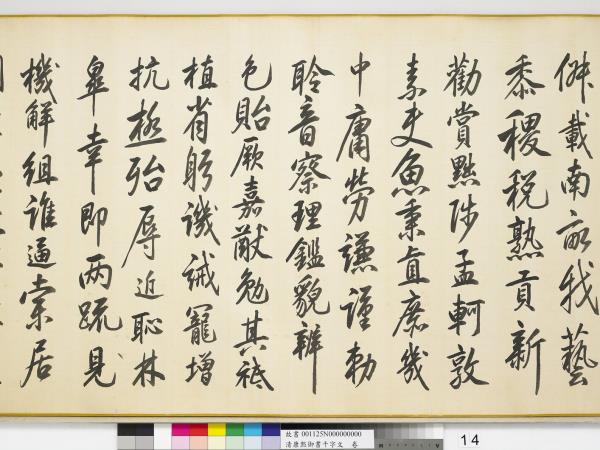 俶載南畝我藝
黍稷稅熟貢新
勸賞黜陟孟軻敦
素史魚秉直庶幾
中庸勞謙謹勅
聆音察理鑑貌辨
色貽厥嘉猷勉其祗
植省躬譏誡寵增
抗極殆辱近恥林
皐幸即兩疏見
機解組誰逼索居
故書 001125N000000000
清康熙御書千字文 卷
14